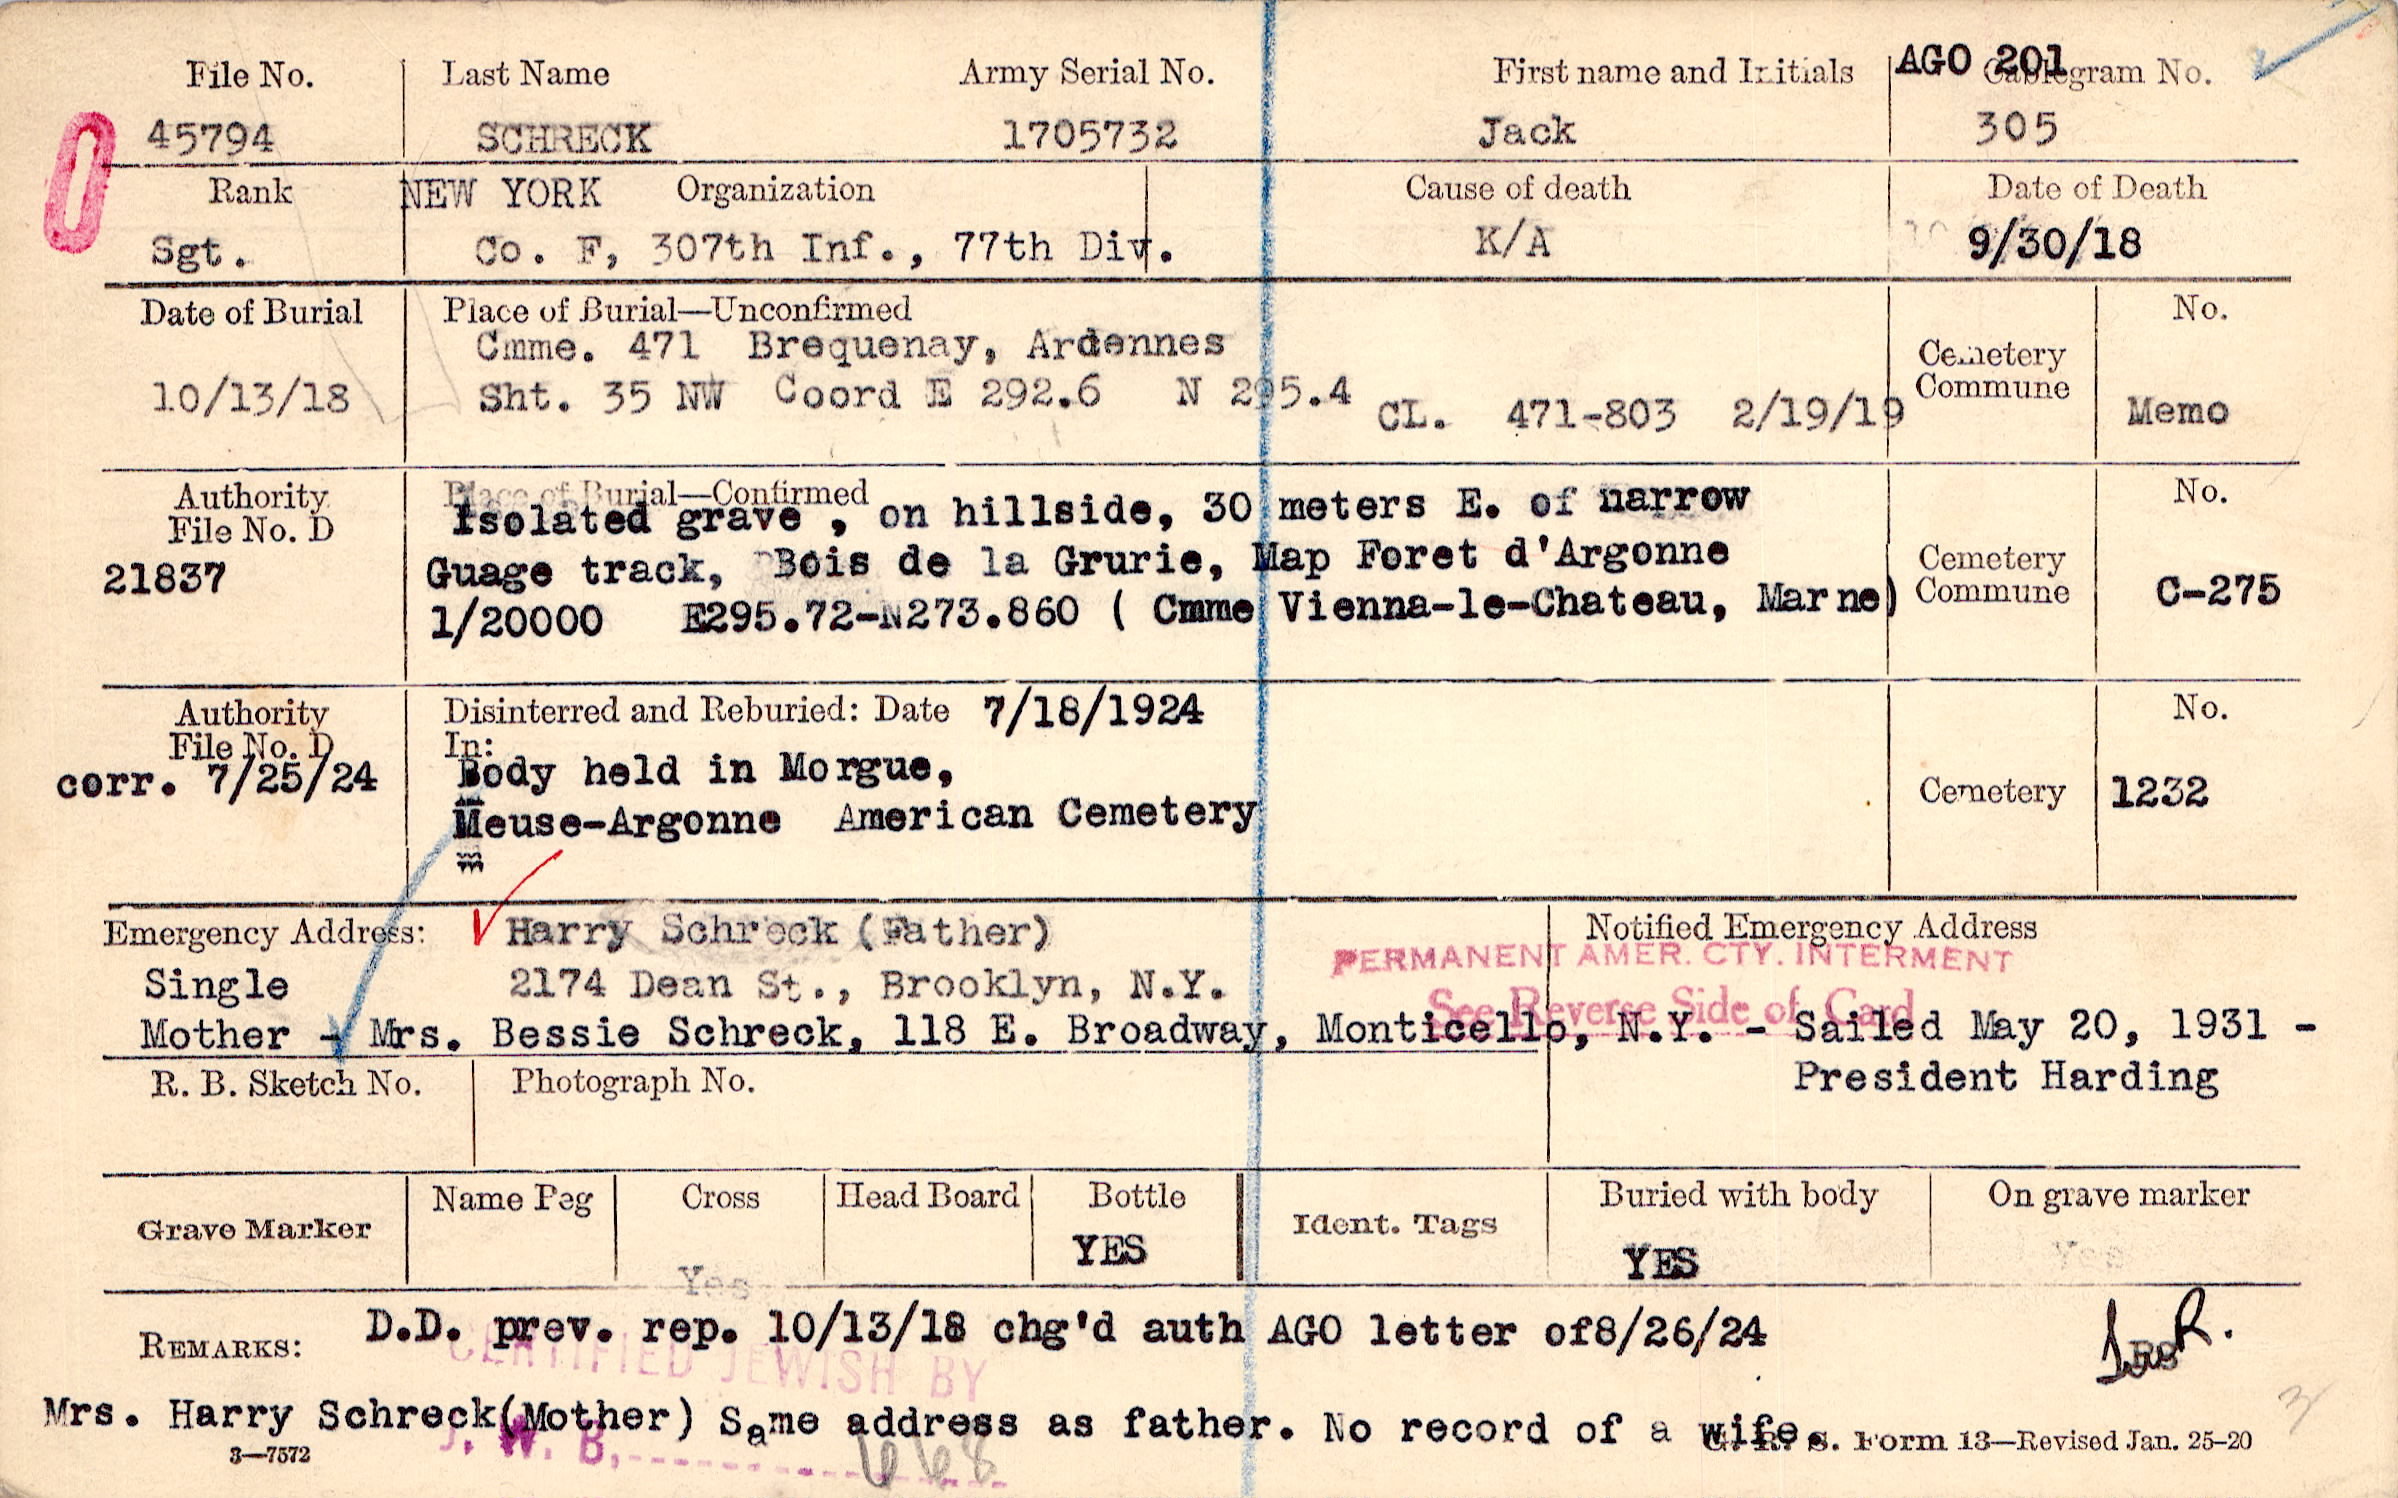 File No. Last Name Army Serial No. First name and Initials AGO 201 Cablegram No.
45794 SCHRECK 1705732 Jack 305
Rank NEW YORK Organization Cause of death Date of Death
Sgt. Co. F, 307th Inf., 77th Div. K/A 9/30/18
Date of Burial Place of Burial—Unconfirmed No.
Cmme. 471 Brequenay, Ardennes Cemetery
10/13/18 Sht. 35 NW Coord E 292.6 N 295.4 Commune
CL. 471-803 2/19/19 Memo
Authority Place of Burial—Confirmed No.
File No. D Isolated grave , on hillside, 30 meters E. of narrow
21837 Guage track, Bois de la Grurie, Map Foret d'Argonne Cemetery
1/20000 E295.72-N273.860 ( Cmme Vienna-le-Chateau, Marne) Commune C-275
Authority Disinterred and Reburied: Date 7/18/1924 No.
File No. D In:
corr. 7/25/24 Body held in Morgue, Cemetery 1232
Meuse-Argonne American Cemetery
Emergency Address: Harry Schreck (Father) Notified Emergency Address
PERMANENT AMER. CTY. INTERMENT
Single 2174 Dean St., Brooklyn, N.Y.
See Reverse Side of Card
Mother - Mrs. Bessie Schreck, 118 E. Broadway, Monticello, N.Y. - Sailed May 20, 1931 -
R. B. Sketch No. Photograph No. President Harding
Name Peg Cross Head Board Bottle Buried with body On grave marker
Grave Marker Ident. Tags
Yes YES YES Yes
REMARKS: D.D. prev. rep. 10/13/18 chg'd auth AGO letter of8/26/24
CERTIFIED JEWISH BY
Mrs. Harry Schreck(Mother) Same address as father. No record of a wife.
J. W. B. 668
3—7572 G. R. S. Form 13—Revised Jan. 25-20